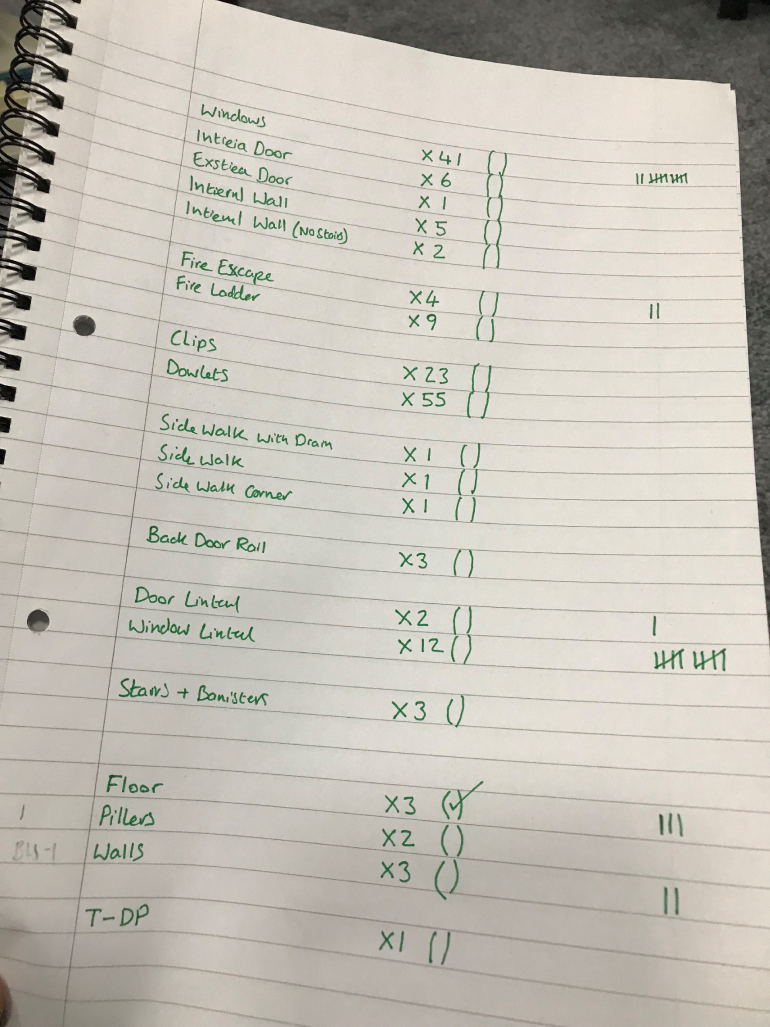 Windows X 41 ()
Intreia Door X 6 () || 卌 卌
Exstiea Door X 1 ()
Intiernl Wall X 5 ()
Intieml Wall (No Stairs) X 2 ()
Fire Escape X 4 () ||
Fire Ladder X 9 ()
Clips X 23 ()
Dowlets X 55 ()
Side Walk With Dram X 1 ()
Side Walk X 1 ()
Side Walk Corner X 1 ()
Back Door Rail X3 ()
Door Linteul X2 () |
Window Linteul X 12 () 卌 卌
Stairs + Banisters X3 ()
Floor X3 (✓) |||
| Pillers X2 ()
Walls X3 () ||
T-DP X1 ()